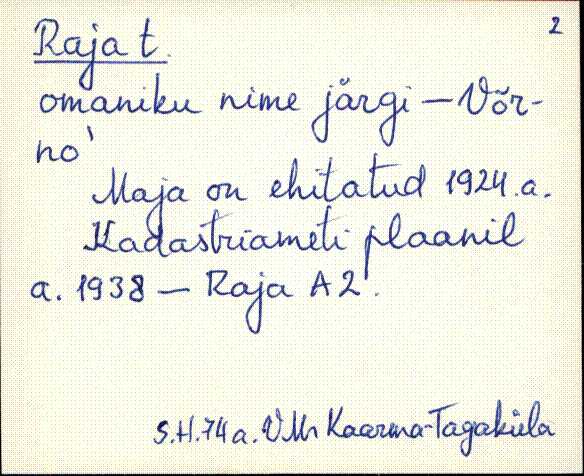 2
Raja t.
omaniku nime järgi – Võr-
no'
Maja on ehitatud 1924.a.
Kadastriameti plaanil
a. 1938 – Raja A2.
S.H. 74 a. VMr Kaarma-Tagaküla